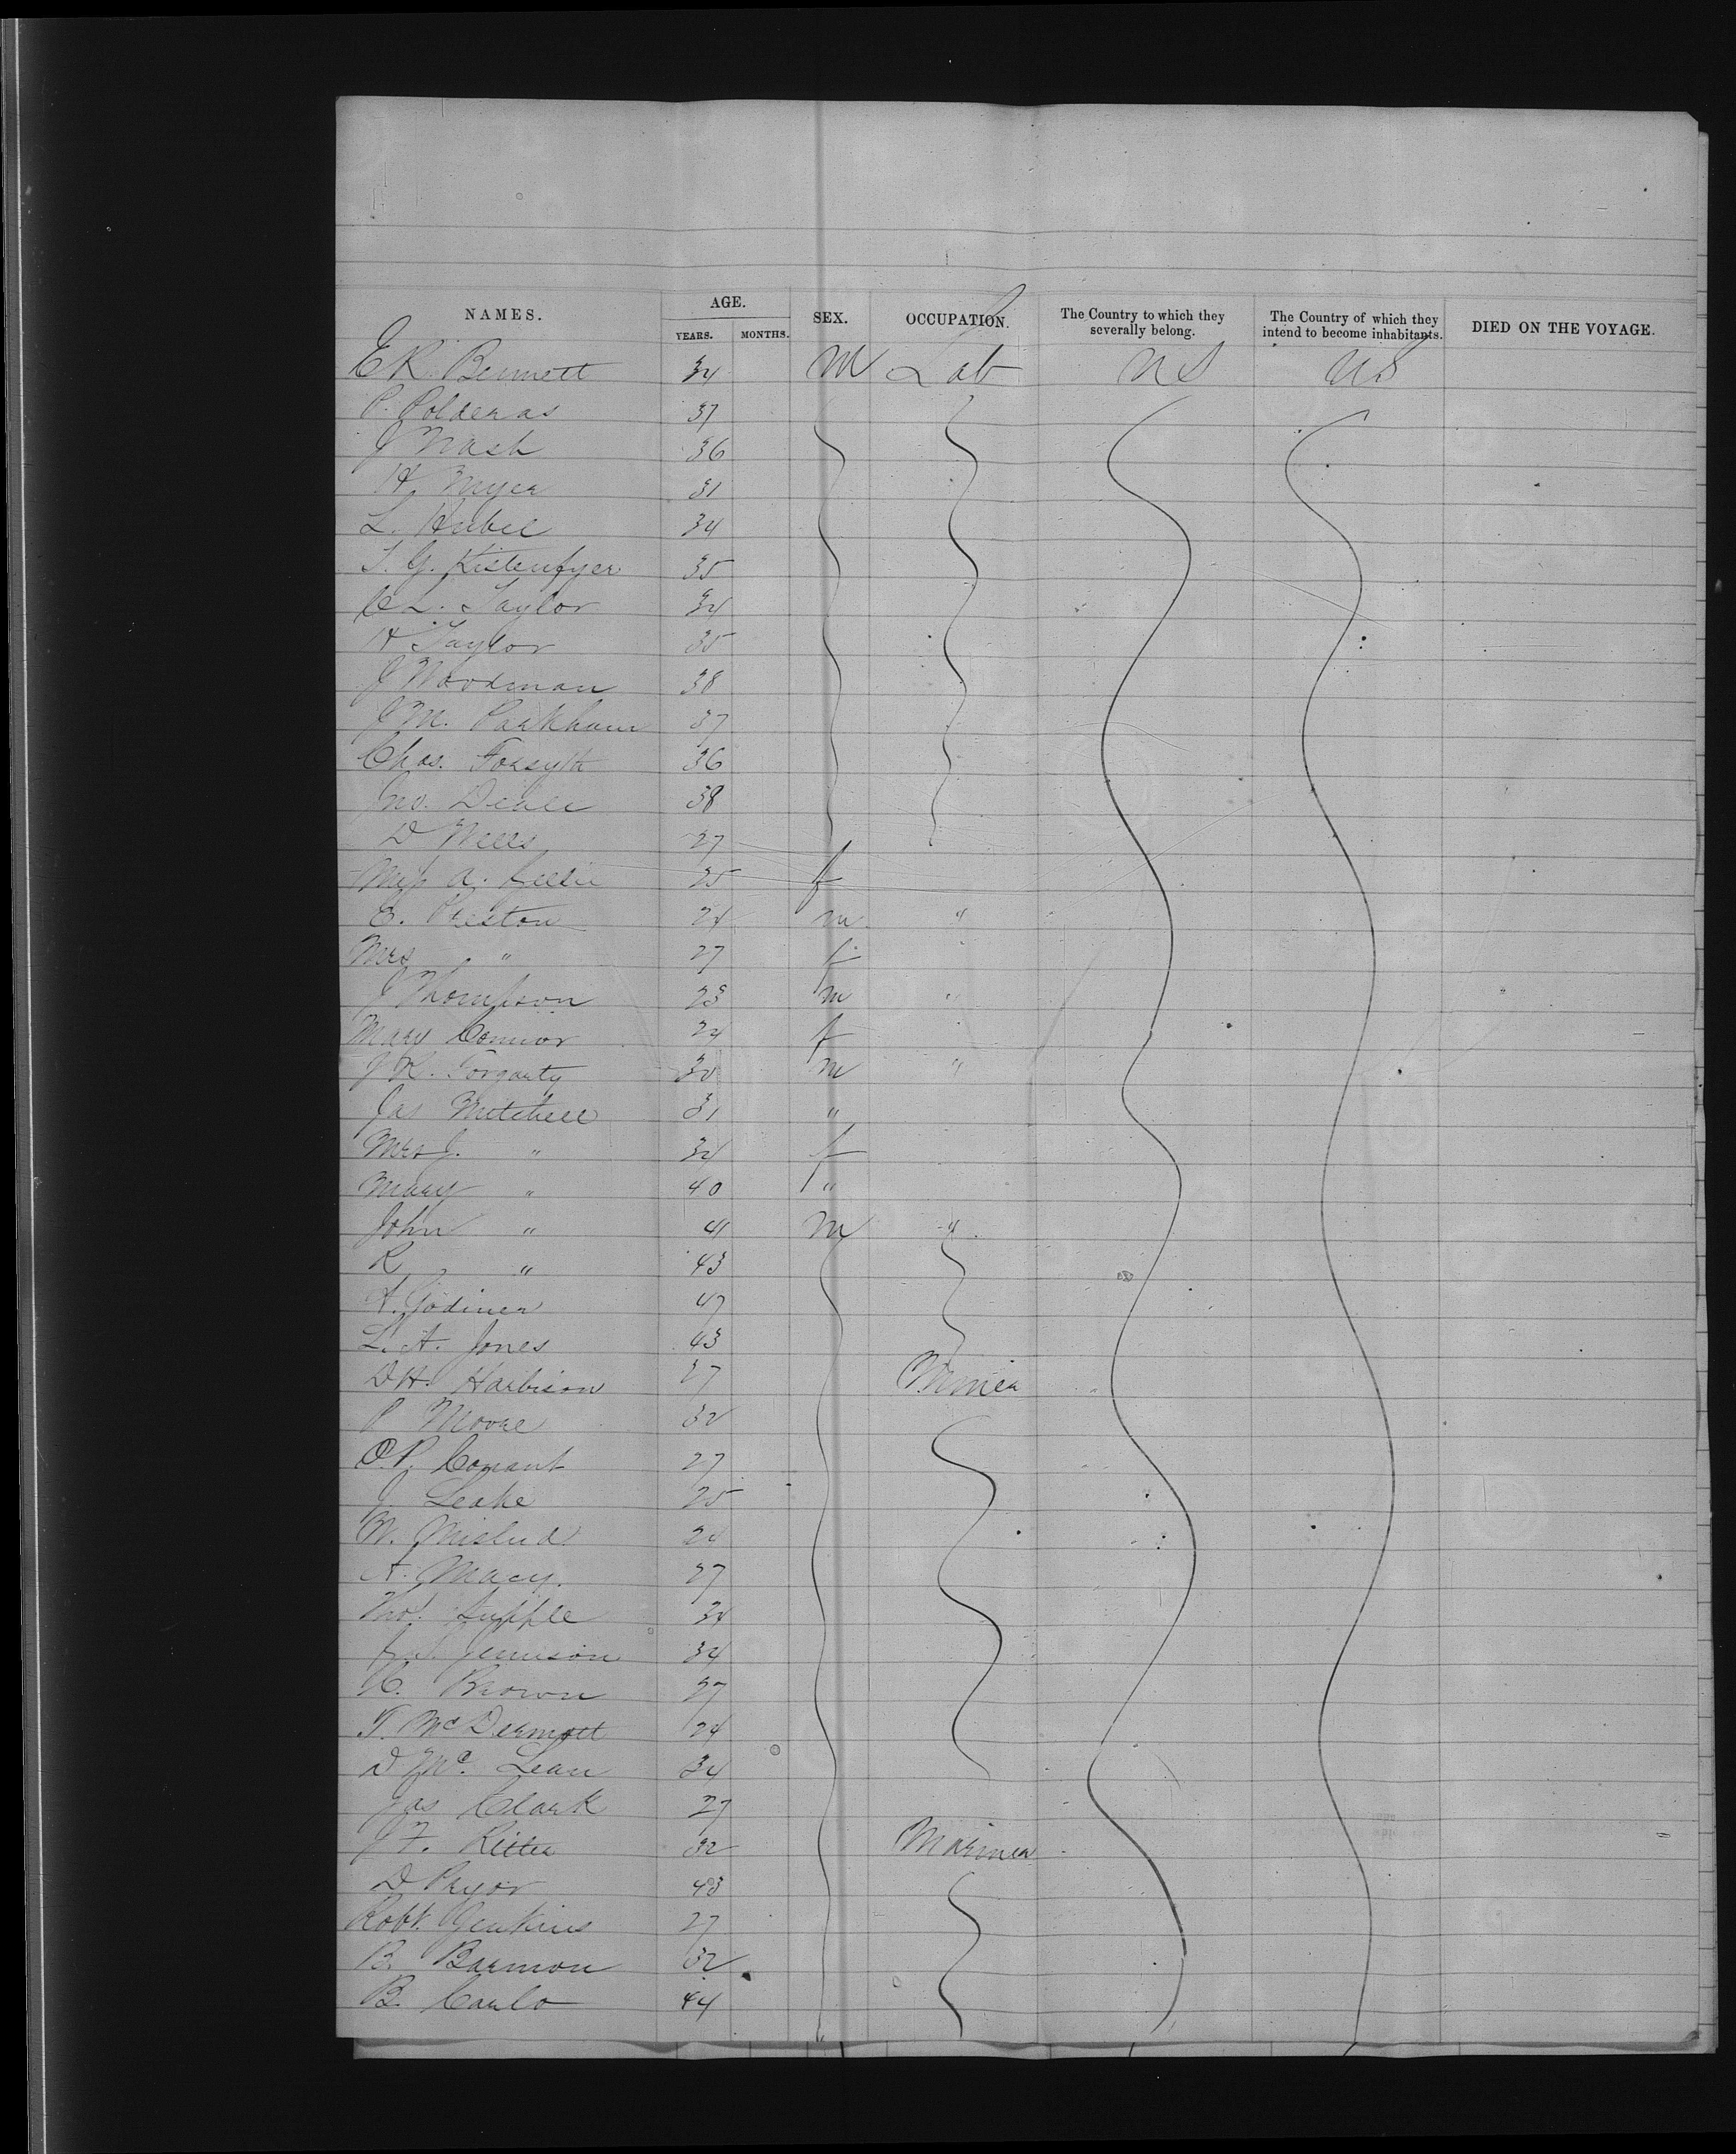 NAMES. AGE. SEX. OCCUPATION. The Country to which they severally belong. The Country of which they intend to become inhabitants. DIED ON THE VOYAGE.
YEARS. MONTHS.
E R. Bennett 34 M Lab U S U S
P. Polderas 37
J Nash 36
H. Myer 31
L. Hubel 34
T. G. Kistenfyer 35
C L. Taylor 34
H Taylor 35
J Woodman 38
J M. Parkham 37
Chas. Forsyth 36
Jno. Deale 38
D Wells 27
Miss A. 25 f
E. Preston 24 m "
Mrs " 27 f
J Thompson 23 m "
Mary Connor 24 f
J K. Forgarty 30 m "
Jas Mitchell 31 "
Mrs J. " 34 f
Mary " 40 "
John " 41 M "
R " 43
A. Godiner 47
L. A. Jones 43
D H. Harbison 37 Miner
P Moore 32
O. P. Conant 27
J. Leake 25
W. 24
A. Macy. 27
Thos. Supple 34
Jemison 34
C. Brown 27
T. McDermott 24
D Mc. Lean 34
Jas Clark 27
J F. Ritter 32 Mariner
D Pryor 43
Robt. Jenkins 27
B. Barmon 32
B. Carlo 44